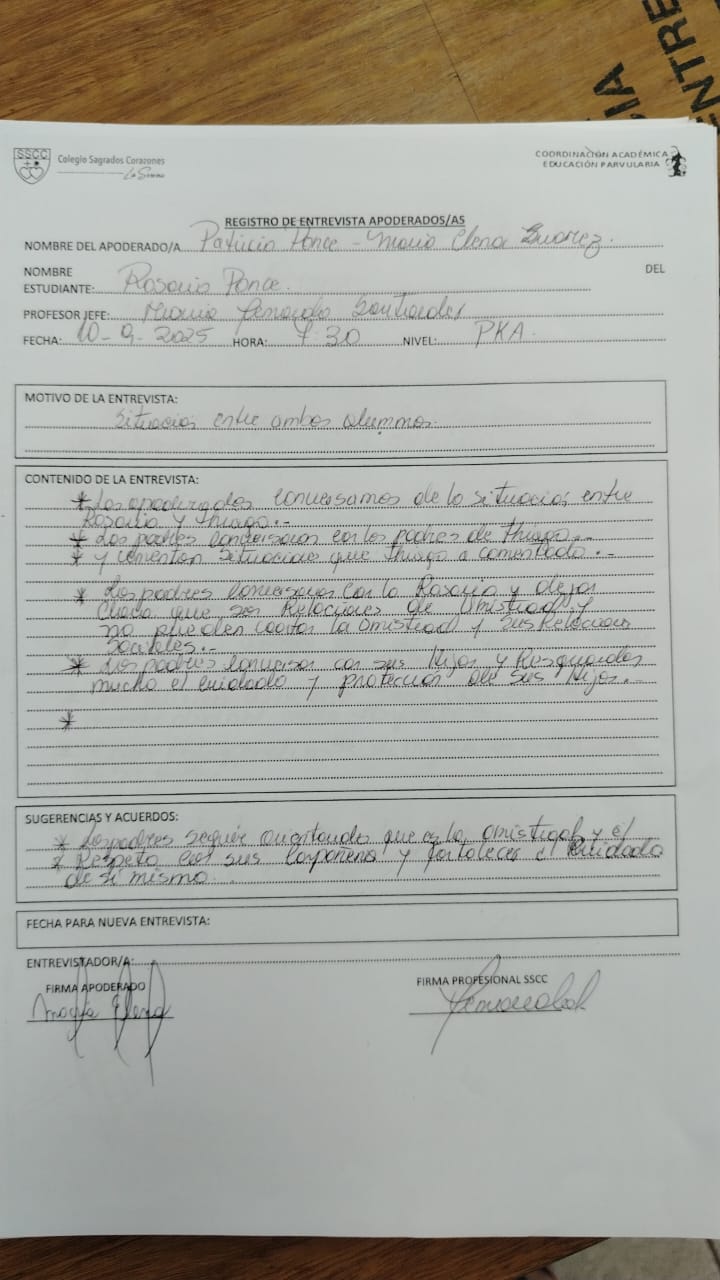 ENTRE
CIA
ENTRE
SSCC
Colegio Sagrados Corazones
La Serena
COORDINACIÓN ACADÉMICA
EDUCACIÓN PARVULARIA
REGISTRO DE ENTREVISTA APODERADOS/AS
NOMBRE DEL APODERADO/A Patricio Ponce - Maria Elena Suarez.
NOMBRE DEL
ESTUDIANTE: Rosario Ponce.
PROFESOR JEFE: Maria Fernanda Santander
FECHA: 10-9-2025 HORA: 7:30 NIVEL: PKA
MOTIVO DE LA ENTREVISTA:
Situacios entre ambos alumnos.
CONTENIDO DE LA ENTREVISTA:
* Los apoderados conversamos de la situacios entre
Rosario y Thiago.-
* Los padres conversaron con los padres de Thiago.-
* y comentan situaciones que Thiago a comentado.-
* Los padres conversaron con la Rosario y dejan
claro que son Relaciones de amistad y
no pueden la amistad y sus Relacion
Sociales.-
* Los padres conversan con sus Hijos y
mucho el cuidado y proteccion de sus Hijos.-
*
SUGERENCIAS Y ACUERDOS:
* Los padres seguir orientando que es la amistad y el
* Respeto con sus y fortalecer el cuidado
de si mismo.
FECHA PARA NUEVA ENTREVISTA:
ENTREVISTADOR/A:
FIRMA APODERADO
FIRMA PROFESIONAL SSCC
Maria Elena